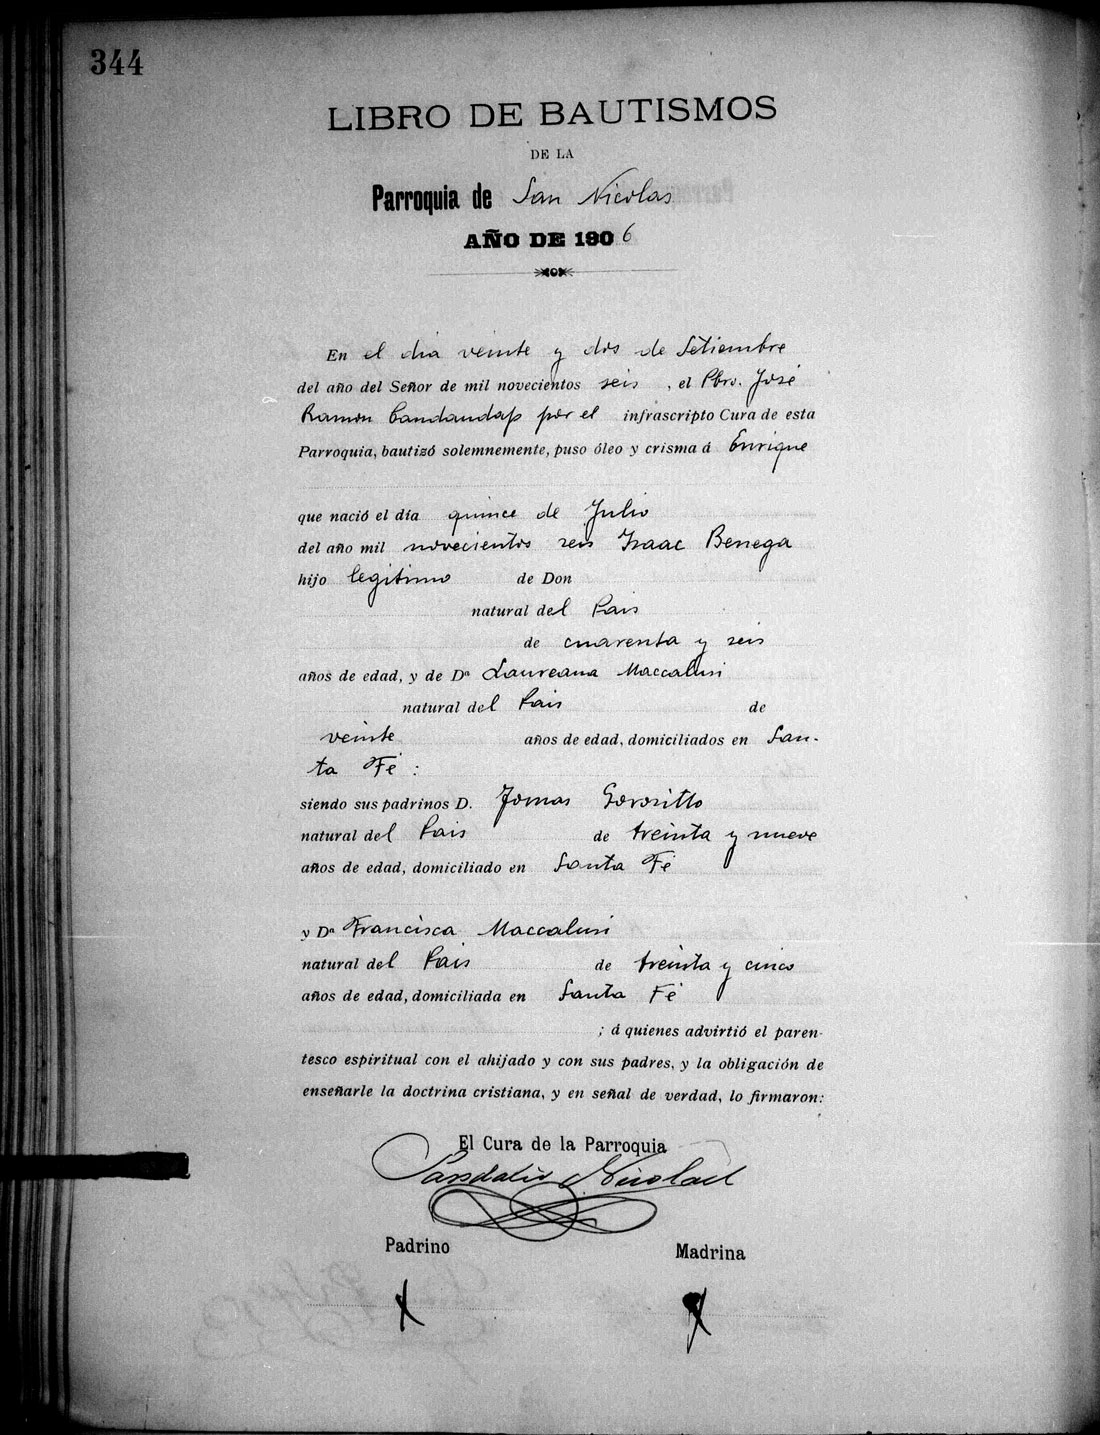 344
LIBRO DE BAUTISMOS
DE LA
Parroquia de San Nicolas
AÑO DE 1906
En el dia veinte y dos de Setiembre
del año del Señor de mil novecientos seis , el Pbro. José
Ramon por el infrascripto Cura de esta
Parroquia, bautizó solemnemente, puso óleo y crisma á Enrique
que nació el día quince de Julio
del año mil novecientos seis Isaac Benega
hijo legitimo de Don
natural del Pais
de cuarenta y seis
años de edad, y de Dª Laureana Maccalusi
natural del Pais de
veinte años de edad, domiciliados en San-
ta Fé :
siendo sus padrinos D. Tomas Gorositto
natural del Pais de treinta y nueve
años de edad, domiciliado en Santa Fé
y Dª Francisca Maccalusi
natural del Pais de treinta y cinco
años de edad, domiciliada en Santa Fé
; á quienes advirtió el paren-
tesco espiritual con el ahijado y con sus padres, y la obligación de
enseñarle la doctrina cristiana, y en señal de verdad, lo firmaron:
El Cura de la Parroquia
Padrino Madrina
X X